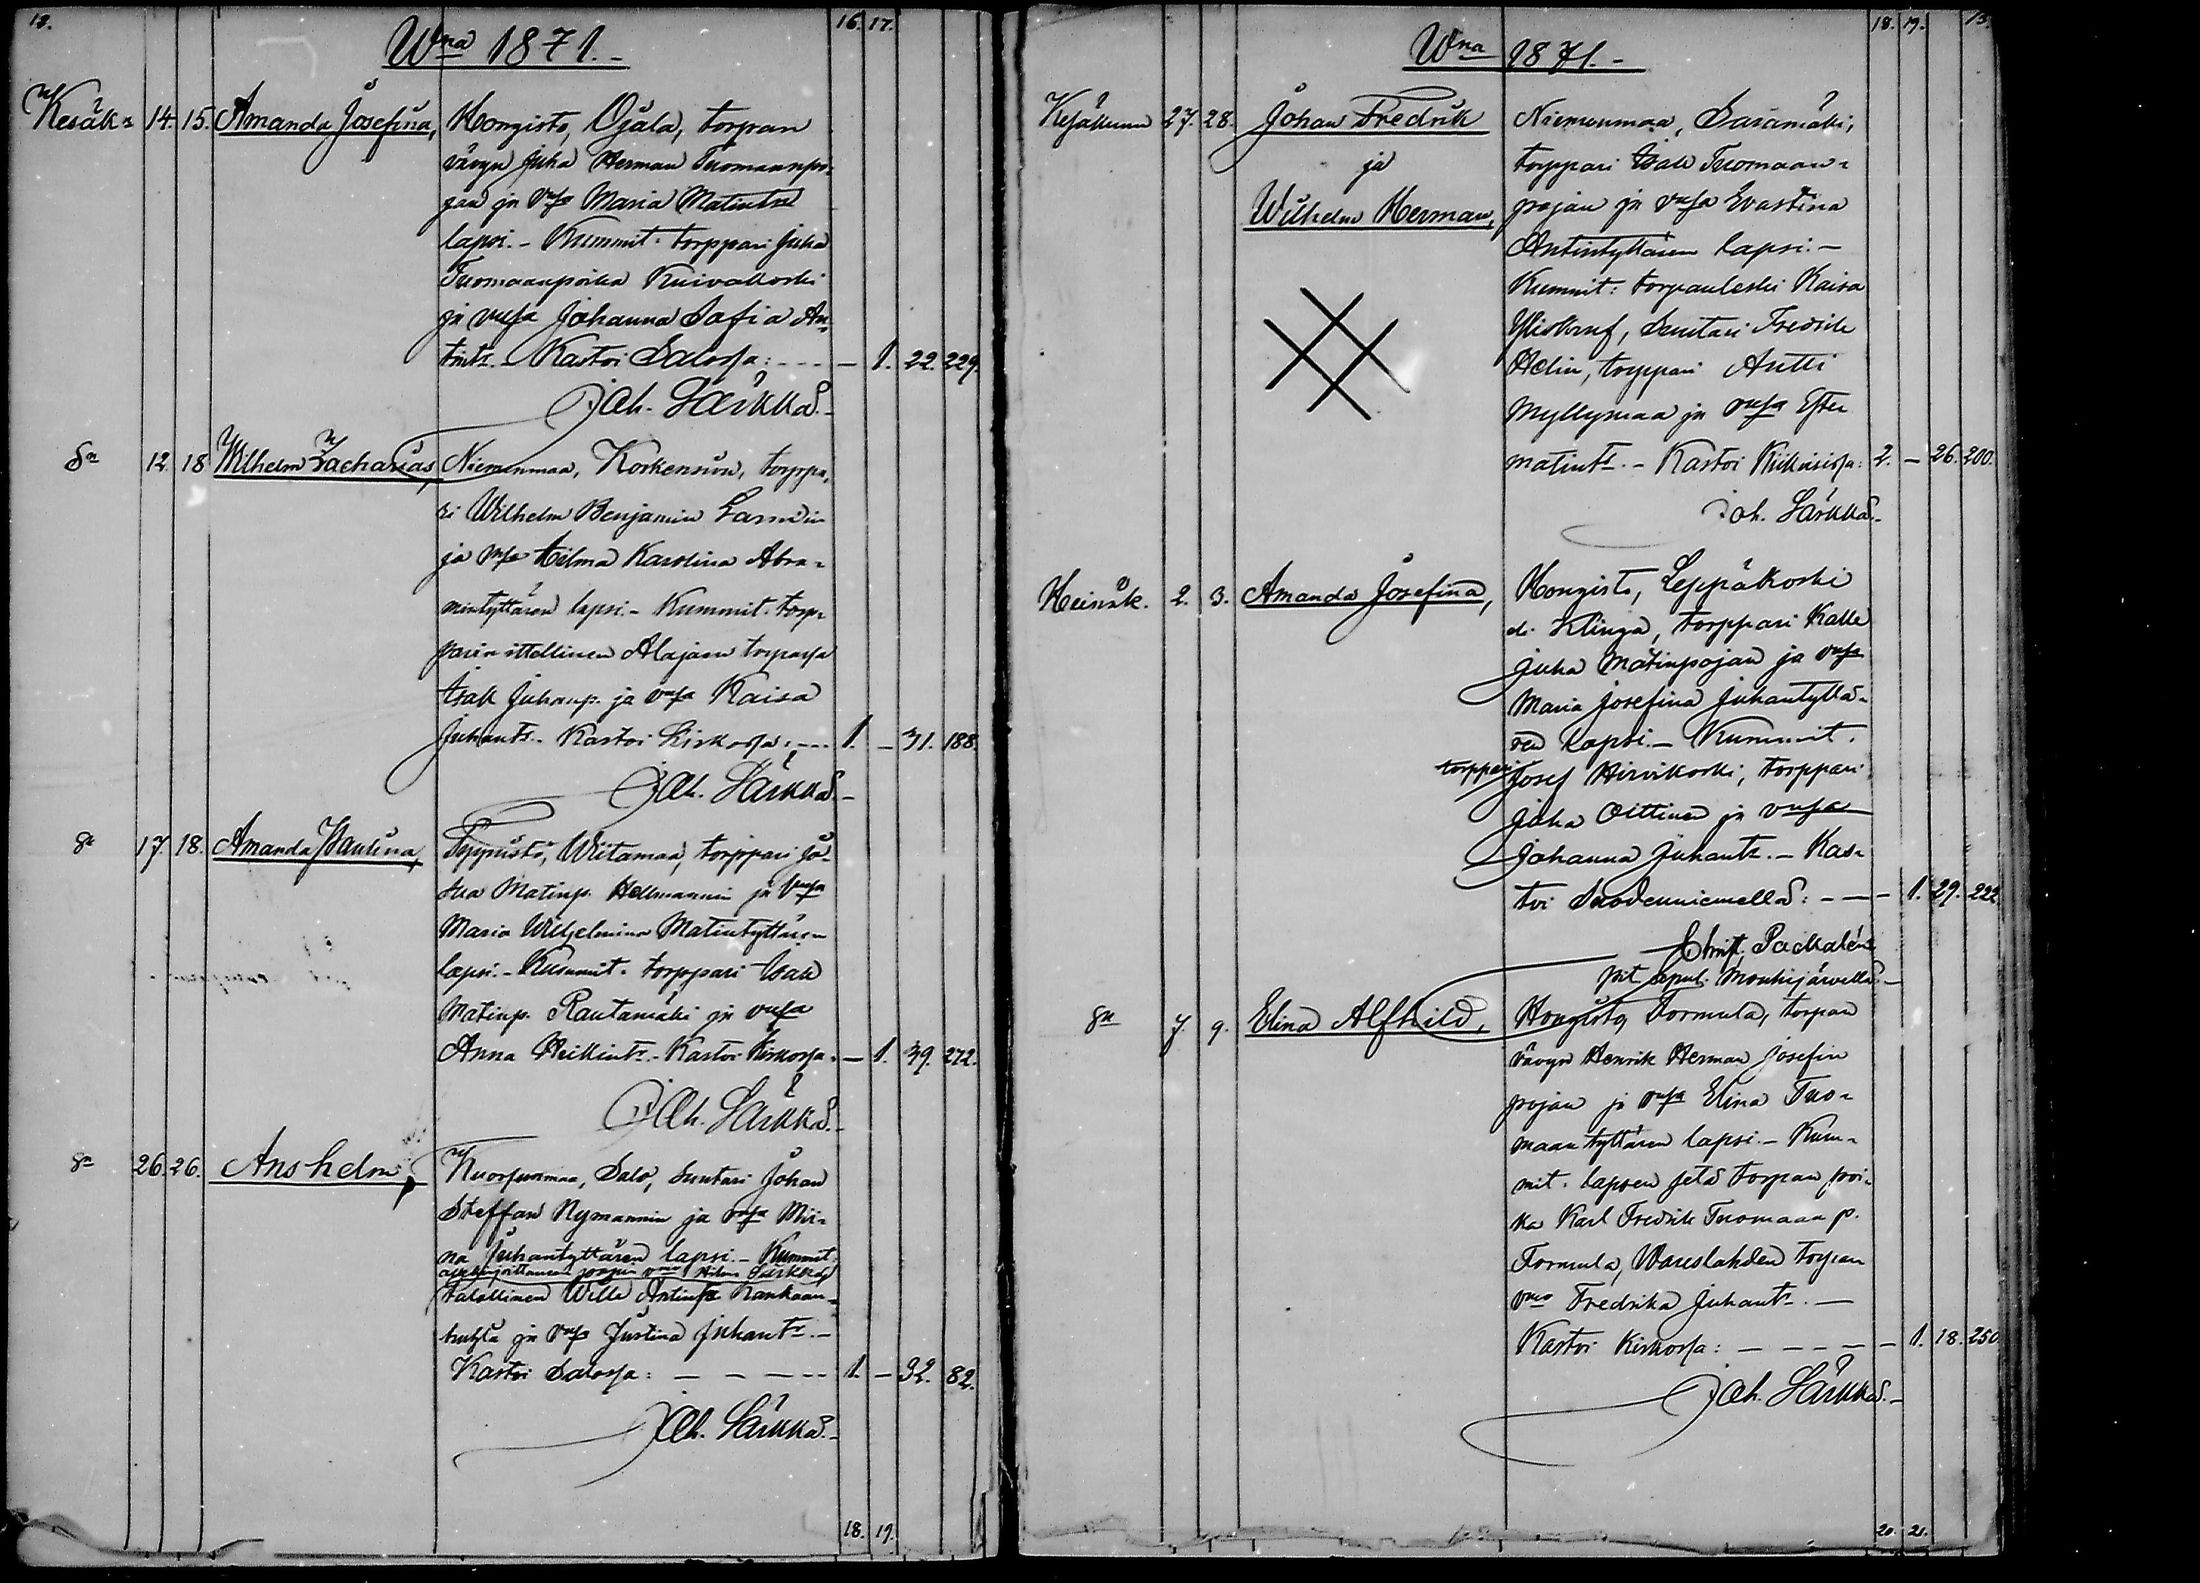 12.
16. 17.
Wna 1871.-
Kesäk. 14. 15. Amanda Josefina, Hongisto, Ojala, torpan
vävyn Juha Herman Tuomaanpo-
jan ja vmsa Maria Matintr
lapsi. - Kummit: torppari Juha
Tuomaanpoika Kuivakoski
ja vmsa Johanna Sofia An-
tintr. - Kastoi Salossa: - - - — 1. 22. 229.
Joh. Särkkä.-
Sn 12. 18. Wilhelm Zacharias, Niemenmaa, Korkensuon, torppa-
ri Wilhelm Benjamin
ja vmsa Hilma Karolina Abra-
mintyttären lapsi. - Kummit: torp-
parin ittellinen Alajaen torpassa
Isak Juhanp. ja vmsa Kaisa
Juhantr. Kastoi Kirkossa: - - - 1. — 31. 188.
Joh. Särkkä.-
Sn 17. 18. Amanda Paulina, Wiitamaa, torppari Jo-
sua Matinp. Hellmannin ja vmsa
Maria Wilhelmina Matintyttären
lapsi. - Kummit: torppari Isak
Matinp. Rautamäki ja vmsa
Anna Heikintr. - Kastoi Kirkossa: — 1. 39. 272.
Joh. Särkkä.-
Sn 26. 26. Anshelm, Kuorsunmaa, Salo, Suntari Johan
Steffan Nymannin ja vmsa Mii-
na Juhantyttären lapsi. - Kummit:
Särkkä,
talollinen Wille Antinp. Kankaan-
ja vmsa Justina Juhantr. -
Kastoi Salossa: — - — - - 1. — 32. 82.
Joh. Särkkä.-
18. 19.
18. 19. 13.
Wna 1871.-
Kesäkuun 27. 28. Johan Fredrik Niemenmaa, Saramäki,
ja torppari Isak Tuomaan-
Wilhelm Herman, pojan ja vmsa Evastina
Antintyttären lapsi. -
Kummit: torpanleski Kaisa
Suntari Fredrik
Helin, torppari Antti
Myllymaa ja vmsa Ester
Matintr. - Kastoi Kiikoisissa: 2. — 26. 200.
Joh. Särkkä.-
Heinäk. 2. 3. Amanda Josefina, Hongisto, Leppäkoski
el. Klinga, torppari Kalle
Juha Matinpojan ja vmsa
Maria Josefina Juhantyttä-
ren lapsi. - Kummit:
torppari Josef Hirvikoski, torppari
Juha Oittinen ja vmsa
Johanna Juhantr. - Kas-
toi Suodenniemellä: - — - 1. 29. 222.
Christ. Packalén
vit. apul. Mouhijärvellä. -
Sn 7. 9. Elina Alfhild, Hongisto, Tormula, torpan
vävyn Henrik Herman Josefin
pojan ja vmsa Elina Tuo-
maantyttären lapsi. - Kum-
mit: lapsen setä torpan poi-
ka Karl Fredrik Tuomaan p.
Tormula, Wareslahden torpan
vmo Fredrika Juhantr. —
Kastoi Kirkossa: — - — - — 1. 18. 250.
Joh. Särkkä.-
20. 21.